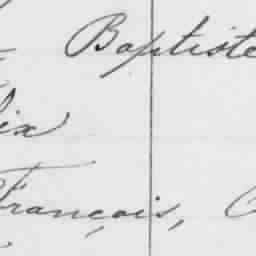 Baptiste
ix
François,